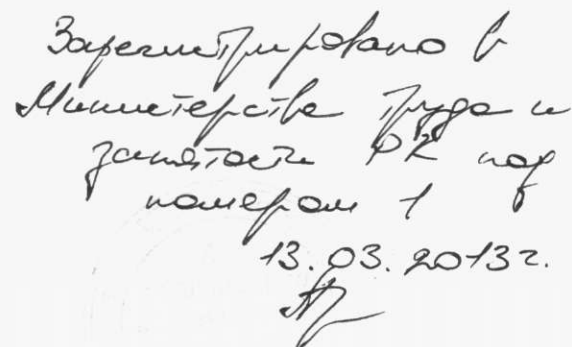 Зарегистрировано в
Министерстве труда и
занятости РК под
номером 1
13.03.2013г.